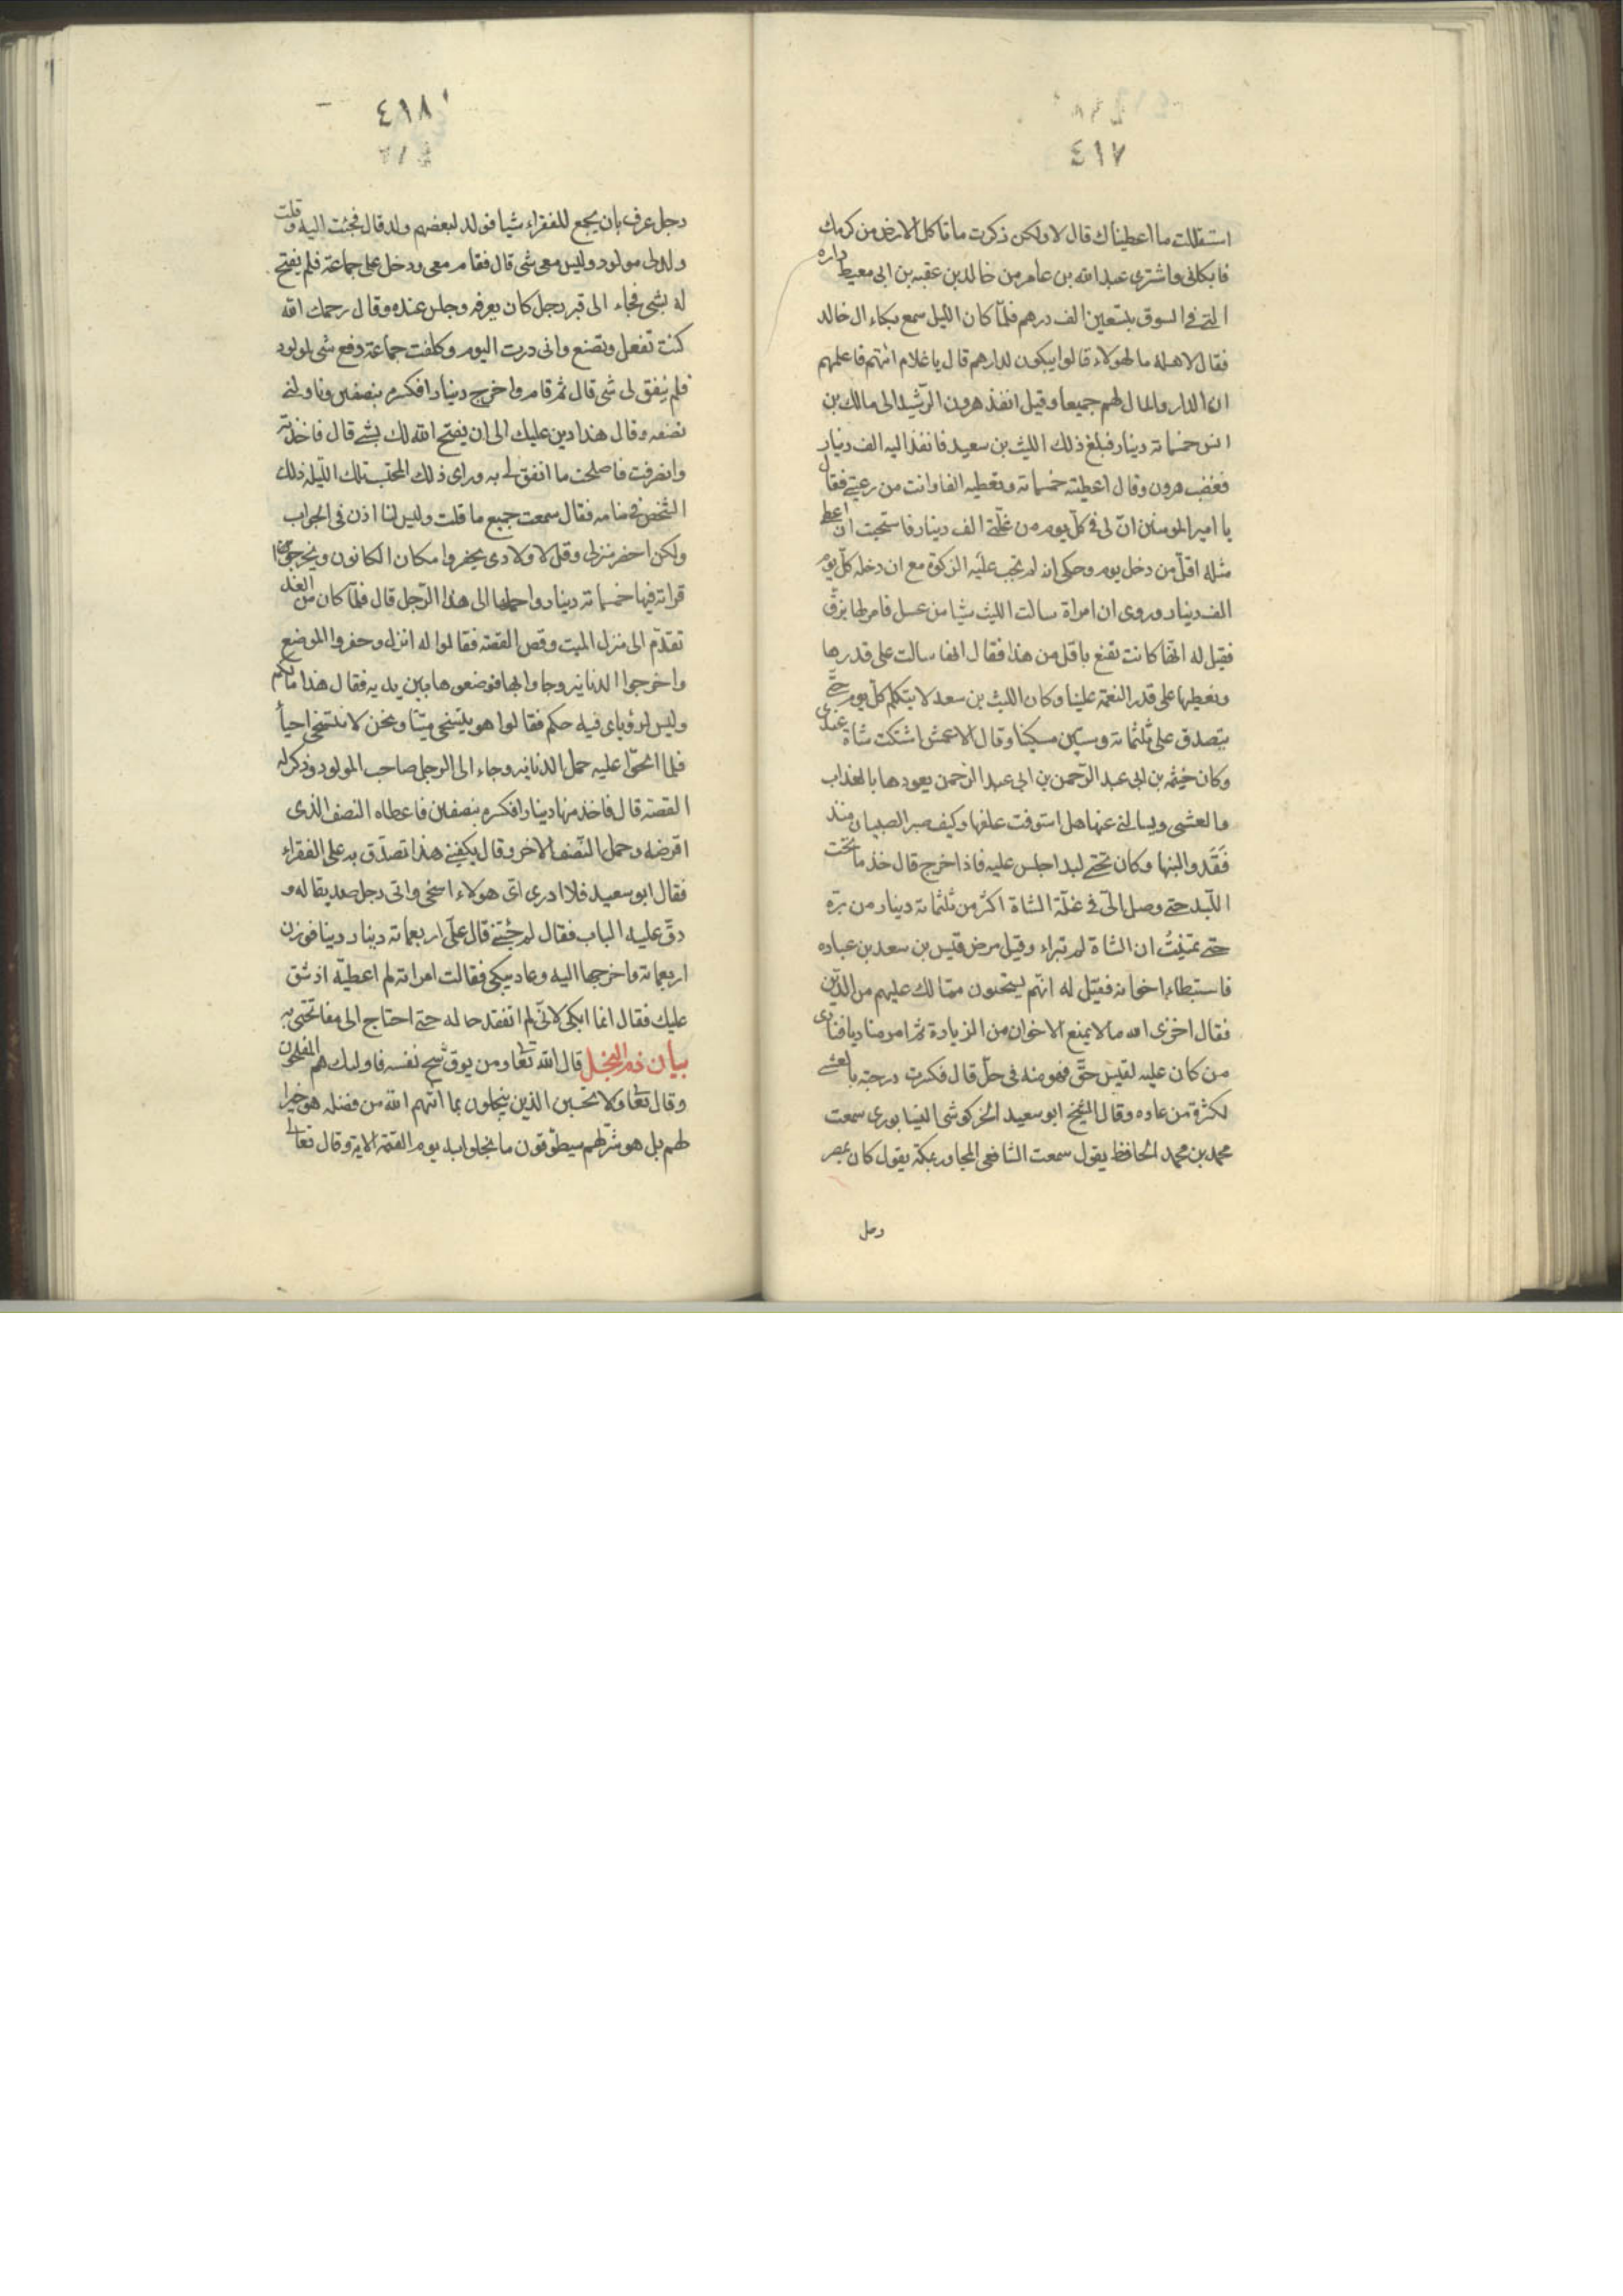 ٤١٧
استقللت ما اعطيناك قال لا ولكن ذكرت ما تاكل الارض من كرمك
فابكانى واشترى عبد الله بن عامر من خالد بن عقبه بن ابى معيط داره
التى فى السوق بتسعين الف درهم فلمّا كان الليل سمع بكاء ال خالد
فقال لاهله ما لهولاء قالوا يبكون لدارهم قال يا غلام ائتهم فاعلمهم
ان الدار والمال لهم جميعا وقيل انفذ هرون الرّشيد الى مالك بن
انس خمسمائة دينار فبلغ ذلك الليث بن سعيد فانفذ اليه الف دينار
فغضب هرون وقال اعطيته خمسمائة وتعطيه الفا وانت من رعيتى فقال
يا امير المومنين انّ لى فى كلّ يوم من غلّتى الف دينار فاستحيت ان اعطى
مثله اقلّ من دخل يوم وحكى انه لم تجب عليه الزكوة مع ان دخله كلّ يوم
الف دينار وروى ان امراة سالت الليث شيا من عسل فامر لها بزقّ
فقيل له انّها كانت تقنع باقل من هذا فقال انها سالت على قدرها
ونعطيها على قدر النعمة علينا وكان الليث بن سعد لا يتكلم كلّ يوم حتّى
يتصدق على ثلثمائة وستين مسكينا وقال الاعمش اشتكت شاة عندى
وكان خيثمه بن ابى عبد الرّحمن بن ابى عبد الرّحمن يعودها بالغداب
والعشى ويسالنى عنها هل استوفت علفها وكيف صبر الصبيان منذ
فَقَدوا لبنها وكان تحتى لبد اجلس عليه فاذا خرج قال خذ ما تحت
اللّبد حتى وصل الىّ فى غلّة الشاة اكثر من ثلثمائة دينار من برّه
حتى تمنّيتُ ان الشاة لم تبراء وقيل مرض قيس بن سعد بن عباده
فاستبطاء اخوانه فقيل له انّهم يستحيون ممّا لك عليهم من الدّين
فقال اخزى الله مالا يمنع الاخوان من الزيادة ثمّ امر مناديا فنادى
من كان عليه لقيس حقّ فهو منه فى حلّ قال فكسرت درجته بالعشى
لكثرة من عاده وقال الشيخ ابو سعيد الخركوشى النيسابورى سمعت
محمد بن محمد الحافظ يقول سمعت الشافعى المجاور بمكة يقول كان بمصر
رجل
٤١٨
رجل عرف بان يجمع للفقراء شيا فولد لبعضهم ولد قال فجئت اليه وقلت
ولد لى مولود وليس معى شى قال فقام معى ودخل على جماعة فلم يفتح
له بشى فجاء الى قبر رجل كان يعرفه وجلس عنده وقال رحمك الله
كنت تفعل وتصنع وانى درت اليوم وكلفت جماعة دفع شى لمولود
فلم يتفق لى شى قال ثم قام واخرج دينارا فكسره بنصفين وناولنى
نصفه وقال هذا دين عليك الى ان يفتح الله لك بشى قال فاخذته
وانصرفت فاصلحت ما اتفق لى به وراى ذلك المحتسب تلك الليله ذلك
الشخص فى منامه فقال سمعت جميع ما قلت وليس لنا اذن فى الجواب
ولكن احضر منزلى وقل لاولادى يحفروا مكان الكانون ويخرجوا
قرابة فيها خمسمائة دينار واحملها الى هذا الرّجل قال فلمّا كان من الغد
تقدّم الى منزل الميت وقص القصّة فقالوا له انزل وحفروا الموضع
واخرجوا الدنانير وجاوا بها فوضعوها بين يديه فقال هذا مالكم
وليس لرؤياى فيه حكم فقالوا هو يتسخى ميّتا ونحن لا نتسخى احياً
فلما الحّوا عليه حمل الدنانير وجاء الى الرجل صاحب المولود وذكر له
القصة قال فاخذ منها دينارا فكسره بنصفين فاعطاه النصف الذى
اقرضه وحمل النّصف الاخر وقال يكفينى هذا تصدّق به على الفقراء
فقال ابو سعيد فلا ادرى اىّ هولاء اسخى واتى رجل صديقا له و
دقّ عليه الباب فقال لم جئتنى قال علىّ اربعمائة دينار دينا فوزن
اربعمائة واخرجها اليه وعاد يبكى فقالت امراته لم اعطيته اذ شق
عليك فقال انما ابكى لانّى لم اتفقد حاله حتى احتاج الى مفاتحتى به
بيان ذم البخل قال الله تعا ومن يوق شح نفسه فاولئك هم المفلحون
وقال تعا ولا تحسبن الذين يبخلون بما آتيهم الله من فضله هو خيرا
لهم بل هو شرّ لهم سيطوّقون ما بخلوا به يوم القيمة الاية وقال تعالى